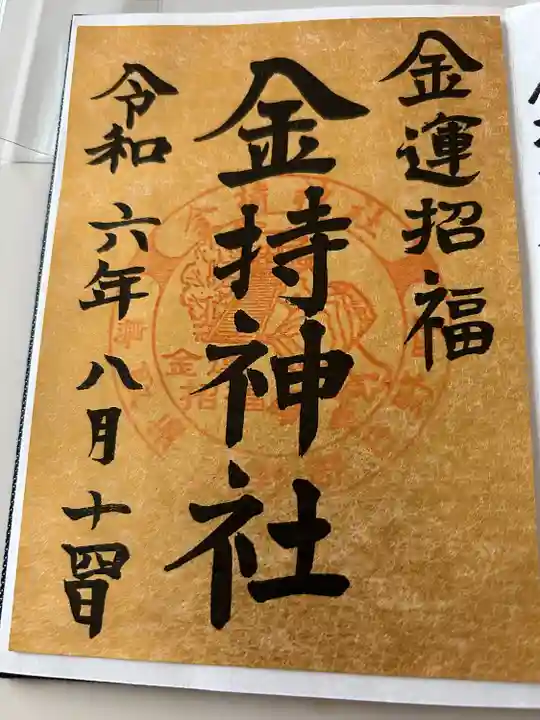 金運招福
金持神社
令和六年八月十四日
金
招福